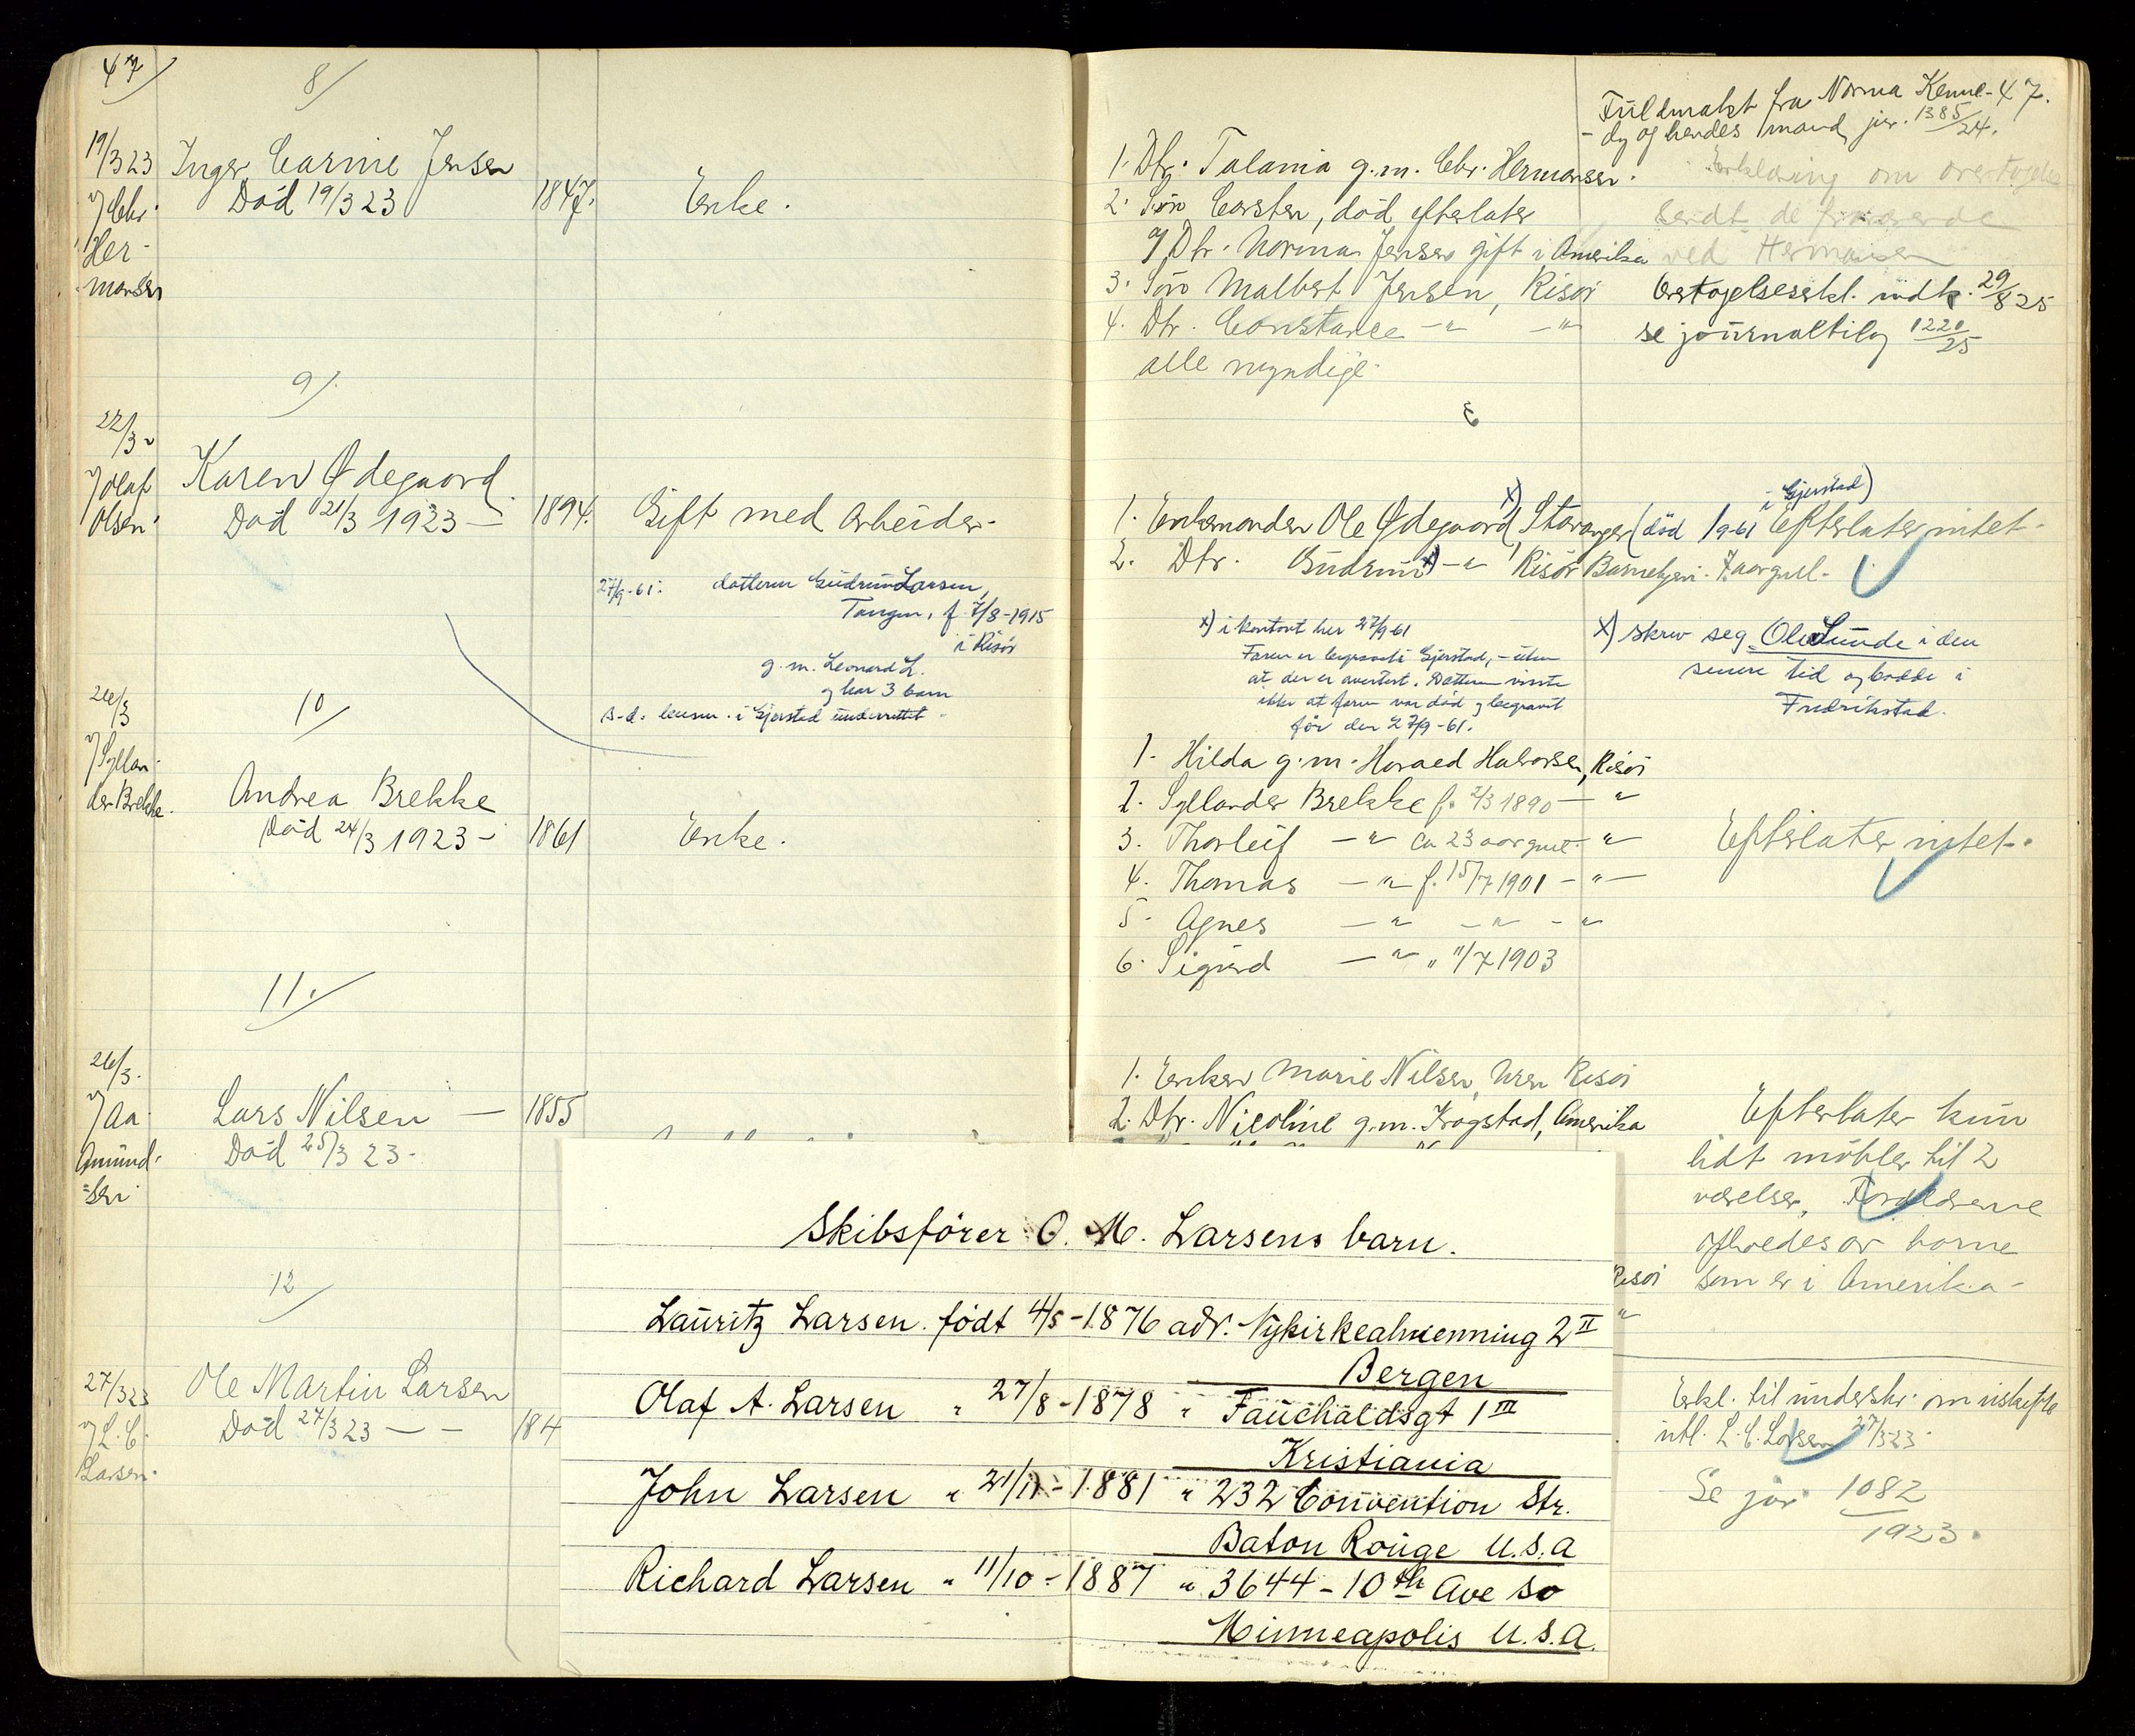 47
8/
19/3 23
v/ Chr.
Her-
mansen
Inger Carine Jensen
Död 19/3 23
1847.
Enke.
1. Dtr. Talania g.m. Chr. Hermansen.
2. Sön Carsten, död efterlater
Dtr. Norma Jensen gift i Amerika
3. Sön Malbert Jensen, Risör
4. Dtr. Constance -"- -"-
alle myndige.
Fuldmakt fra Norma Kenne- 47.
-dy og hendes mand, jnr. 1385/24.
Erklæring om overtagelse
sendt de
ved Hermansen
Overtagelseserkl. indk. 29/8 25
se journalbilag 1220/25
9/
22/3
v/ Olaf
Olsen
Karen Ødegaard
Död 21/3 1923 -
1894.
Gift med arbeider.
27/9-61: datteren Gudrun Larsen,
Tangen, f. 7/8-1915
i Risör
g.m. Leonard L.
og har 3 barn
s.d. lensm. i Gjerstad underrettet.
1. Enkemanden Ole Ødegaard x), Stavanger (död /9-61 i Gjerstad)
Efterlater intet.
2. Dtr. Gudrun x) -"- Risör Barnehjem. 7 aar gml.
x) i kontort her 27/9-61
Faren er begravet i Gjerstad, - uten
at det er avertert. Datteren visste
ikke at faren var död og begravit
för den 27/9-61.
x) skrev seg Ole Lunde i den
senere tid og bodde i
Fredrikstad.
10/
26/3
v/ Syllan-
der Brekke.
Andrea Brekke
Död 24/3 1923 -
1861
Enke.
1. Hilda g.m. Harald Halvorsen, Risör
2. Syllander Brekke f. 2/3 1890 - "
3. Thorleif -"- ca 23 aar gml. - "
4. Thomas -"- f. 15/7 1901 - " -
5. Agnes -"- -"- -"-
6. Sigurd -"- " 11/7 1903
Efterlater intet.
11./
26/3.
v/ Aa
Amund-
sen
Lars Nilsen -
Död 25/3 23.
1855
1. Enken Marie Nilsen, Uren Risör
2. Dtr. Nicoline g.m. Krogstad, Amerika
Efterlater kun
lidt möbler til 2
værelser, Forældrene
opholdes av barna
som er i Amerika-
Risör
"
12/
27/3 23
v/ L. C.
Larsen.
Ole Martin Larsen
Död 27/3 23 - -
184
Erkl. til underskr. om uskifte
utl. L. C. Larsen 27/3 23.
Se jnr 1082/1923.
Skibsförer O. M. Larsens barn.
Lauritz Larsen. födt 4/5-1876 adr. Nykirkealmenning 2 II
Bergen
Olaf A. Larsen " 27/8-1878 " Fauchaldsgt 1 III
Kristiania
John Larsen " 21/11-1881 " 232 Convention Str.
Baton Rouge U.S.A
Richard Larsen " 11/10-1887 " 3644-10th Ave So
Minneapolis U.S.A.